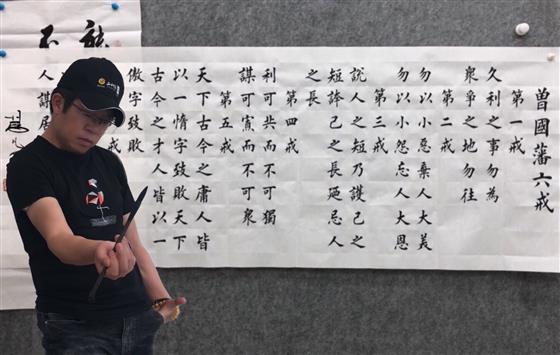 曾國藩六戒
第一戒
久利之事勿為
衆爭之地勿往
第二戒
勿以小惡棄人大美
勿以小怨忘人大恩
第三戒
說人之短乃護己之
短誇己之長廼忌人
之長
第四戒
利可共而不可獨
謀可寡而不可衆
第五戒
天下古今之庸人皆
以一惰字致敗天下
古今之才人皆以一
傲字致敗
人謀居
能
不